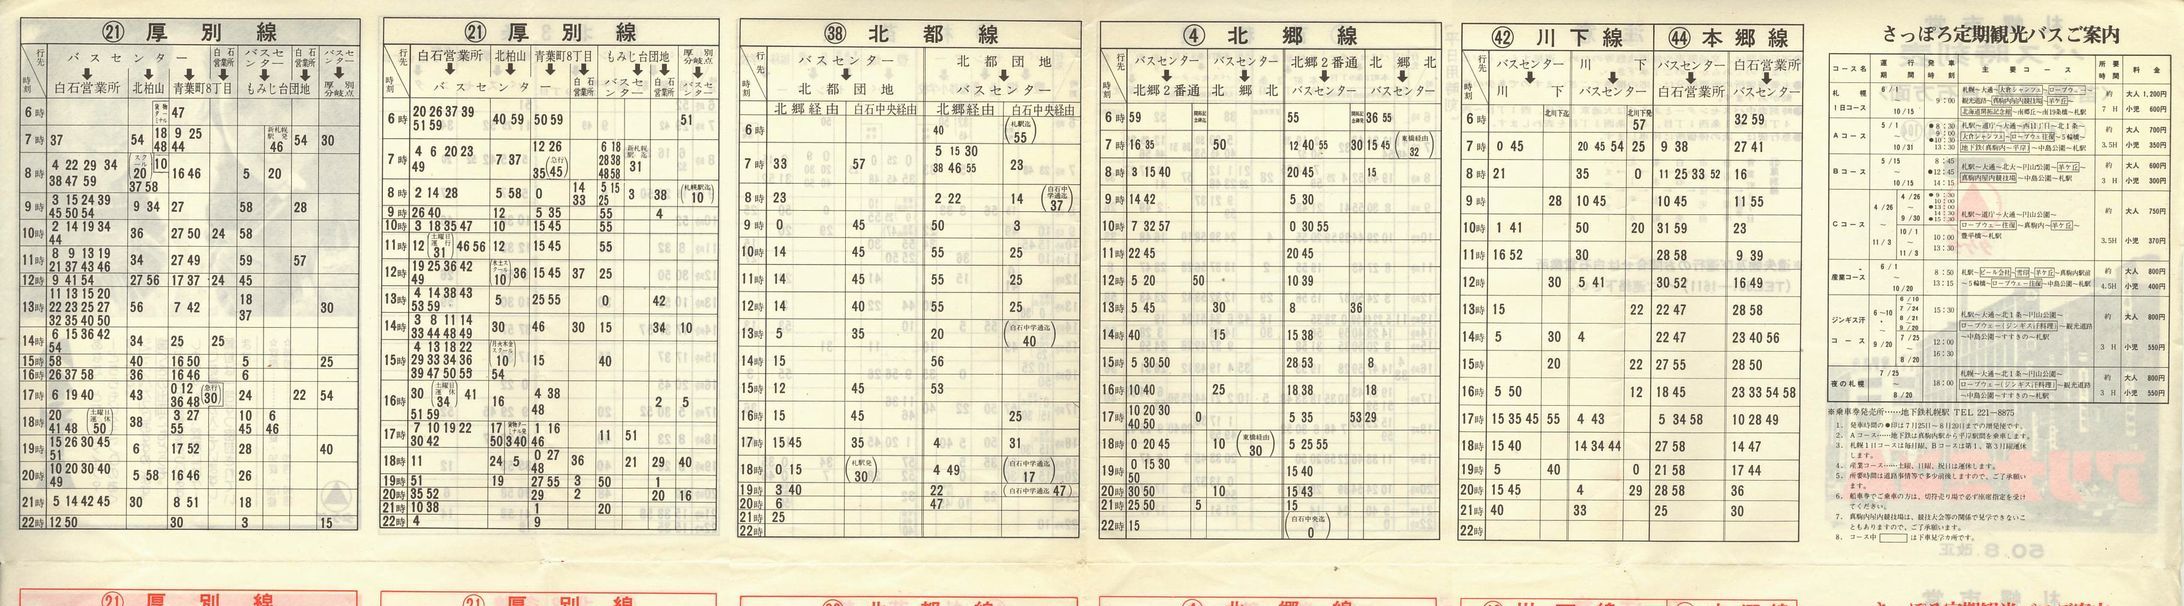 ㉑ 厚別線
行先
時刻
バスセンター
白石営業所
バスセンター
白石営業所
バスセンター
白石営業所 北柏山 青葉町8丁目 もみじ台団地 厚別分岐点
6時 47
7時 37 54 18 48 9 25 44 新札幌駅発 46 54 30
8時 4 22 29 34 38 47 59 スクール 20 37 58 10 16 46 5 20
9時 3 15 24 39 45 50 54 9 34 27 58 28
10時 2 14 19 34 44 36 27 50 24 58
11時 8 9 13 19 21 37 43 46 34 27 49 59 57
12時 9 41 54 27 56 17 37 24 45
13時 11 13 15 20 22 23 25 27 32 35 40 50 56 7 42 18 37 30
14時 6 15 36 42 54 34 25 25
15時 58 40 16 50 5 25
16時 26 37 58 36 16 46 6
17時 6 19 40 43 0 12 36 48 (急行 30) 24 22 54
18時 20 41 48 (土曜日運休 50) 38 3 27 55 10 45 6 46
19時 15 26 30 45 51 6 17 52 28 40
20時 10 20 30 40 49 5 58 16 46 26
21時 5 14 42 45 30 8 51 18
22時 12 50 30 3 15
㉑ 厚別線
行先
時刻
白石営業所 北柏山 青葉町8丁目 もみじ台団地 厚別分岐点
バスセンター
白石営業所
バスセンター
白石営業所
バスセンター
6時 20 26 37 39 51 59 40 59 50 59 51
7時 4 6 20 23 49 7 37 12 26 35 (急行 45) 6 18 28 38 48 58 31
8時 2 14 28 5 58 0 14 33 5 15 25 3 38 (札幌駅迄 10)
9時 26 40 12 5 35 55 4
10時 3 18 35 47 10 15 45 55
11時 12 (土曜日運行 31) 46 56 12 15 45 55
12時 19 25 36 42 49 10 36 15 45 37 25
13時 4 14 38 43 53 59 5 25 55 0 42
14時 3 8 11 14 33 44 48 49 30 46 30 15 34 10
15時 4 13 18 22 29 33 34 36 39 47 50 55 (月火木金スクール 10) 54 15 40
16時 30 (土曜日運休 34) 41 51 59 16 4 38 48 2 5
17時 7 10 19 22 30 42 17 50 3 40 1 16 46 11 51
18時 11 24 5 0 27 48 36 21 29 40
19時 51 19 27 55 3 50 1
20時 35 52 29 2 20 16
21時 10 38 1 20
22時 4 9
㊳ 北都線
行先
時刻
バスセンター 北都団地
北都団地 バスセンター
北郷経由 白石中央経由 北郷経由 白石中央経由
6時 40 (札駅迄 55)
7時 33 57 5 15 30 38 46 55 23
8時 23 2 22 14 (白石中学通迄 37)
9時 0 45 50 3
10時 14 45 55 25
11時 14 45 55 25
12時 14 40 55 25
13時 5 35 20 (白石中学通迄 40)
14時 15 56
15時 12 45 53
16時 15 45 25
17時 15 45 35 4 31
18時 0 15 (札駅発 30) 4 49 (白石中学通迄 17)
19時 3 40 22 (白石中学通迄 47)
20時 6 47
21時 25
22時
④ 北郷線
行先
時刻
バスセンター バスセンター 北郷2番通 北郷北
北郷2番通 北郷北 バスセンター バスセンター
6時 59 55 36 55
7時 16 35 50 12 40 55 30 15 45 (東橋経由 32)
8時 3 15 40 20 45 15
9時 14 42 5 30
10時 7 32 57 0 30 55
11時 22 45 20 45
12時 5 20 50 10 39
13時 5 45 30 8 36
14時 40 15 15 38
15時 5 30 50 28 53 8
16時 10 40 25 18 38 18
17時 10 20 30 40 50 0 5 35 53 29
18時 0 20 45 10 (東橋経由 30) 5 25 55
19時 0 15 30 50 15 40
20時 30 50 10 15 43
21時 25 50 5 15
22時 15 (白石中央迄 0)
㊷ 川下線
行先
時刻
バスセンター 川下
川下 バスセンター
6時 北川下迄 北川下発 57
7時 0 45 20 45 54 25
8時 21 35 0
9時 28 10 45
10時 1 41 50 20
11時 16 52 30
12時 30 5 41
13時 15 22
14時 5 30 4
15時 20 22
16時 5 50 12
17時 15 35 45 55 4 43
18時 15 40 14 34 44
19時 5 40 0
20時 15 45 4 29
21時 40 33
22時
㊹ 本郷線
バスセンター 白石営業所
白石営業所 バスセンター
32 59
9 38 27 41
11 25 33 52 16
10 45 11 55
31 59 23
28 58 9 39
30 52 16 49
22 47 28 58
22 47 23 40 56
27 55 28 50
18 45 23 33 54 58
5 34 58 10 28 49
27 58 14 47
21 58 17 44
28 58 36
25 30
さっぽろ定期観光バスご案内
コース名 運行期間 発車時刻 主要コース 所要時間 料金
札幌1日コース 6/1 ~ 10/15 9:00 約7H 大人1,200円 小児600円
Aコース 5/1 ~ 10/31 約3.5H 大人700円 小児350円
Bコース 5/15 ~ 10/15 8:45 ●12:45 14:15 札駅~大通~北大~円山公園~羊ケ丘~真駒内屋内競技場~中島公園~札駅 約3H 大人600円 小児300円
Cコース 4/26 ~ 9/30 札駅~道庁~大通~円山公園~ロープウェー往復~真駒内~羊ケ丘~豊平橋~札駅 約3.5H 大人750円 小児370円
10/1 ~ 11/3 10:00 13:30
産業コース 6/1 ~ 10/20 8:50 13:15 約4.5H 大人800円 小児400円
ジンギス汗コース 15:30 12:00 16:30 札駅~大通~北1条~円山公園~ロープウェー(ジンギス汗料理)~観光道路~中島公園~すすきの~札駅 約3H 大人800円 小児550円
夜の札幌 7/25 ~ 8/20 18:00 札幌~大通~北1条~円山公園~ロープウェー(ジンギス汗料理)~観光道路~中島公園~すすきの~札駅 約3H 大人800円 小児550円
※乗車券発売所……地下鉄札幌駅 TEL 221-8875
1. 発車時間の●印は7月25日~8月20日までの増発便です。
2. Aコース……地下鉄は真駒内駅から平岸駅間を乗車します。
3. 札幌1日コースは毎日曜、Bコースは第1、第3月曜運休します。
4. 産業コース……土曜、日曜、祝日は運休します。
5. 所要時間は道路事情等で多少前後しますので、ご了承願います。
6. 船車券でご乗車の方は、切符売り場で必ず座席指定を受けてください。
7. 真駒内屋内競技場は、競技大会等の関係で見学できないこともありますので、ご了承願います。
8. コース中 は下車見学カ所です。
㉑ 厚別線
㉑ 厚別線